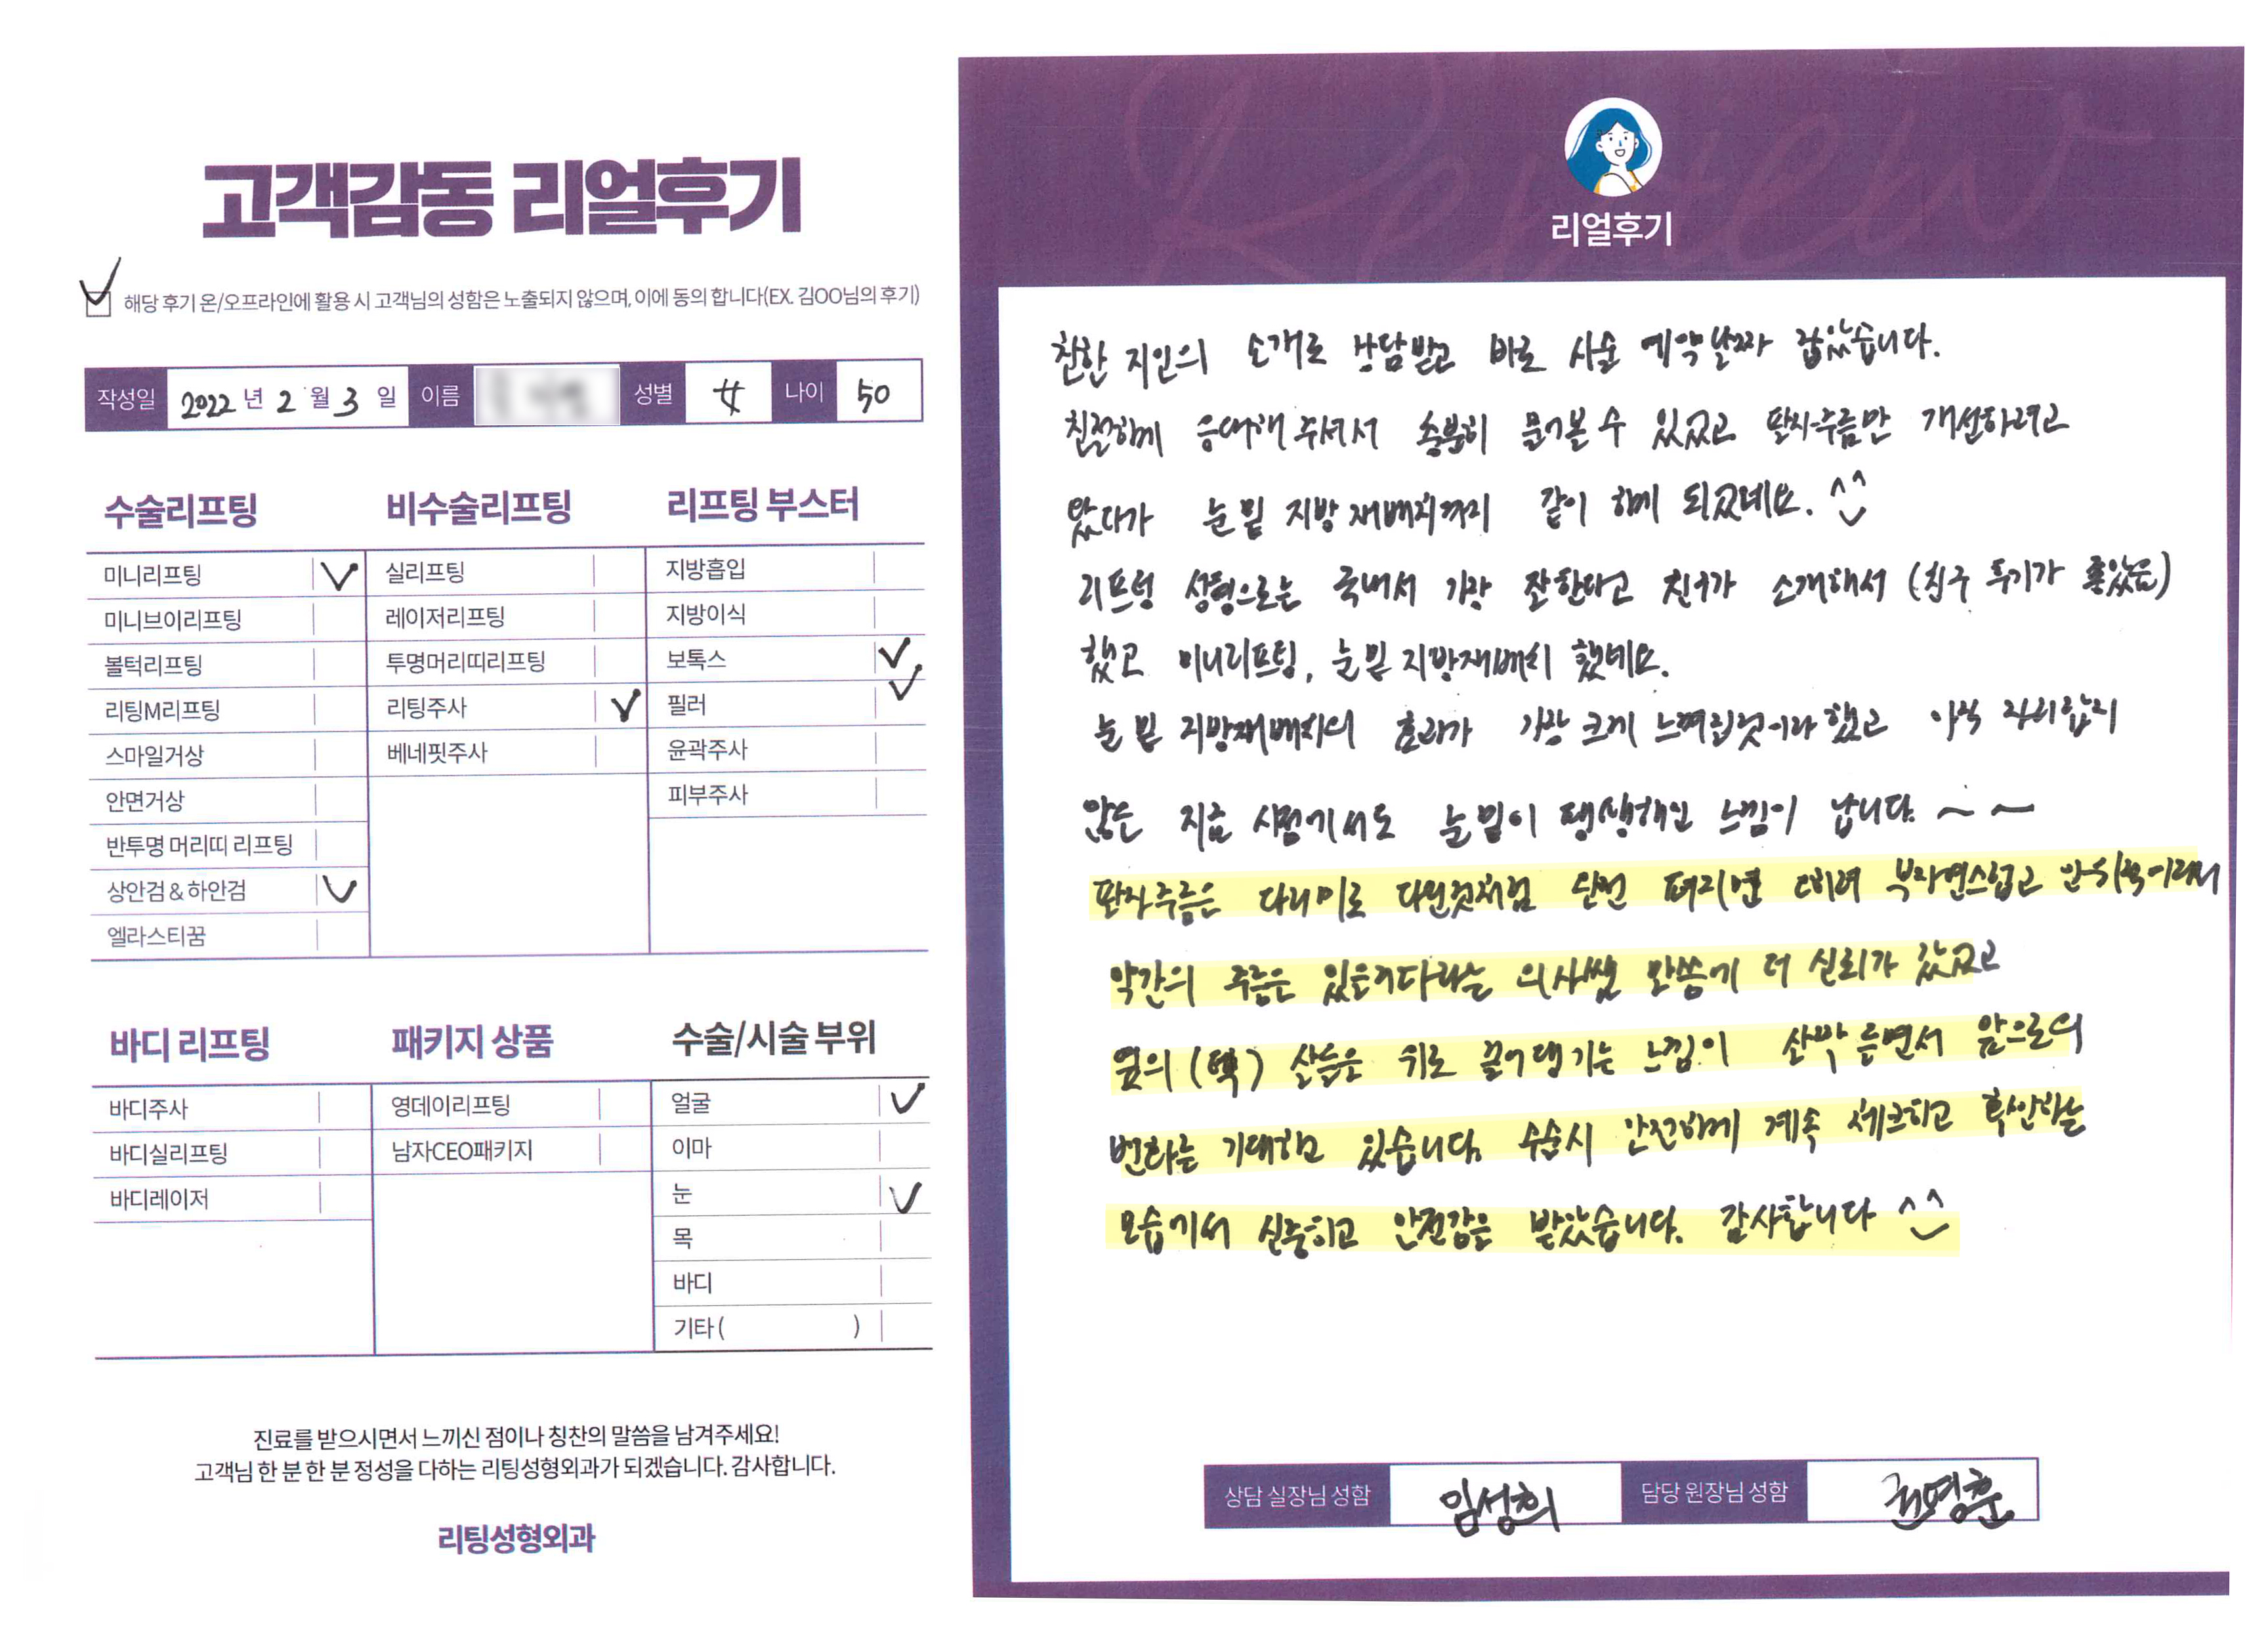 고객감동 리얼후기
해당 후기 온/오프라인에 활용 시 고객님의 성함은 노출되지 않으며, 이에 동의 합니다(EX. 김OO님의 후기)
작성일 2022 년 2 월 3 일 이름 성별 女 나이 50
수술리프팅 비수술리프팅 리프팅 부스터
미니리프팅 실리프팅 지방흡입
미니브이리프팅 레이저리프팅 지방이식
볼턱리프팅 투명머리띠리프팅 보톡스
리팅M리프팅 리팅주사 필러
스마일거상 베네핏주사 윤곽주사
안면거상 피부주사
반투명 머리띠 리프팅
상안검 & 하안검
엘라스티꿈
바디 리프팅 패키지 상품 수술/시술 부위
바디주사 영데이리프팅 얼굴
바디실리프팅 남자CEO패키지 이마
바디레이저 눈
목
바디
기타 ( )
진료를 받으시면서 느끼신 점이나 칭찬의 말씀을 남겨주세요!
고객님 한 분 한 분 정성을 다하는 리팅성형외과가 되겠습니다. 감사합니다.
리팅성형외과
Review
리얼후기
친한 지인의 소개로 상담받고 바로 시술 예약날짜 잡았습니다.
친절하게 응대해 주셔서 충분히 물어볼 수 있었고 팔자주름만 개선하려고
왔다가 눈 밑 지방재배치까지 같이 하게 되었네요. ^^
리프팅 성형으로는 국내서 가장 잘한다고 친구가 소개해서 (친구 후기가 좋았음)
했고 미니리프팅, 눈 밑 지방재배치 했네요.
눈 밑 지방재배치의 효과가 가장 크게 느껴질것이라 했고 아직 자리잡지
않은 지금 시점에서도 눈 밑이 탱탱해진 느낌이 납니다. ~ ~
팔자주름은 다리미로 다린것처럼 완전 펴지면 대려 부자연스럽고
약간의 주름은 있을거다라는 의사쌤 말씀에 더 신뢰가 갔었고
옆의 (턱) 살들은 위로 끌어댕기는 느낌이 살짝 들면서 앞으로의
변화는 기대하고 있습니다. 수술시 안전하게 계속 체크하고 확인하는
모습에서 신중하고 안전감을 받았습니다. 감사합니다 ^^
상담 실장님 성함 임성희 담당 원장님 성함